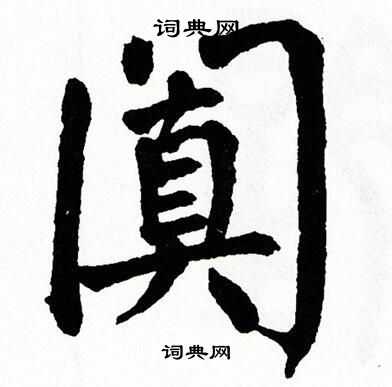 词典网
阗
词典网